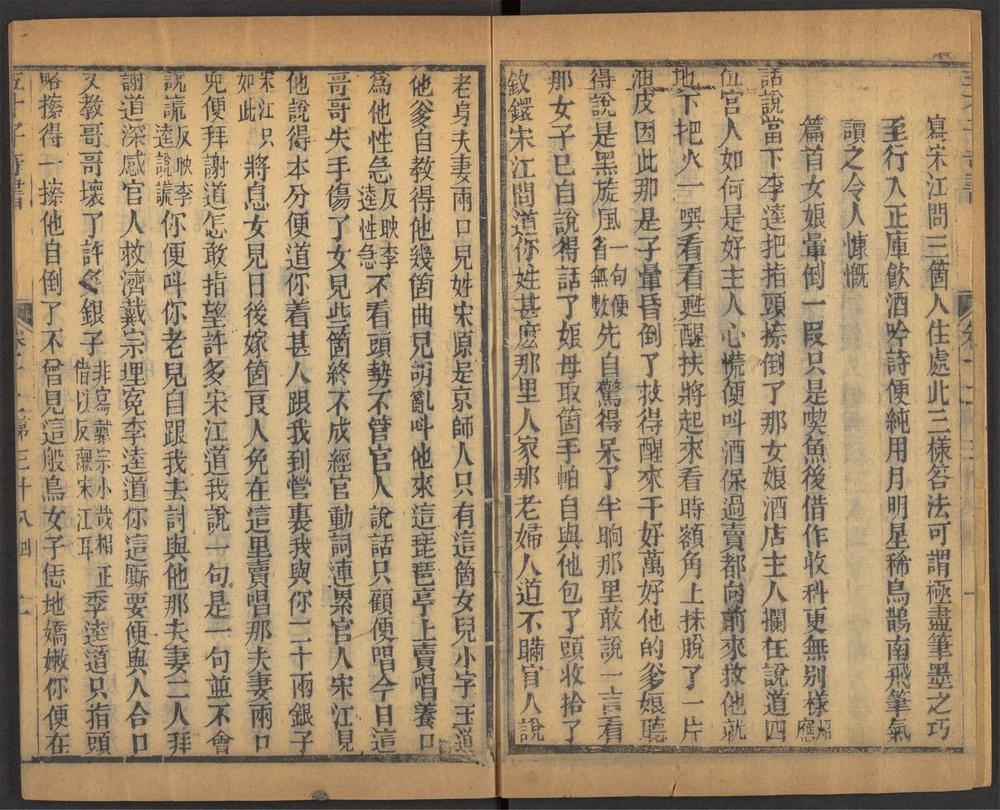 寫宋江問三箇人住處此三樣答法可謂極盡筆墨之巧
至行入正庫飲酒吟詩便純用月明星稀烏鵲南飛筆氣
讀之令人慷慨
篇首女娘暈倒一段只是喫魚後借作收科更無別樣照應
話說當下李逵把指頭捺倒了那女娘酒店主人攔在說道四
位官人如何是好主人心慌便叫酒保過賣都向前來救他就
地下把水一噀看看甦醒扶將起來看時額角上抹脫了一片
油皮因此那是子暈昏倒了救得醒來千好萬好他的爹娘聽
得說是黑旋風一句便省無數先自驚得呆了半晌那里敢說一言看
那女子已自說得話了娘母取箇手帕自與他包了頭收拾了
釵鐶宋江問道你姓甚麽那里人家那老婦人道不瞞官人說
老身夫妻兩口兒姓宋原是京師人只有這箇女兒小字玉蓮
他爹自教得他幾箇曲兒胡亂叫他來這琵琶亭上賣唱養口
爲他性急反映李逵性急不看頭勢不管官人說話只顧便唱今日這
哥哥失手傷了女兒些箇終不成經官動詞連累官人宋江見
他說得本分便道你着甚人跟我到營裏我與你二十兩銀子
宋江只如此將息女兒日後嫁箇良人免在這里賣唱那夫妻兩口
兒便拜謝道怎敢指望許多宋江道我說一句是一句並不會
說謊反映李逵說謊你便叫你老兒自跟我去討與他那夫妻二人拜
謝道深感官人救濟戴宗埋冤李逵道你這廝要便與人合口
又教哥哥壞了許多銀子非寫戴宗小哉相正借以反襯宋江耳李逵道只指頭
略捺得一捺他自倒了不曾見這般鳥女子恁地嬌嫩你便在
五才子奇書
第三十八回
二